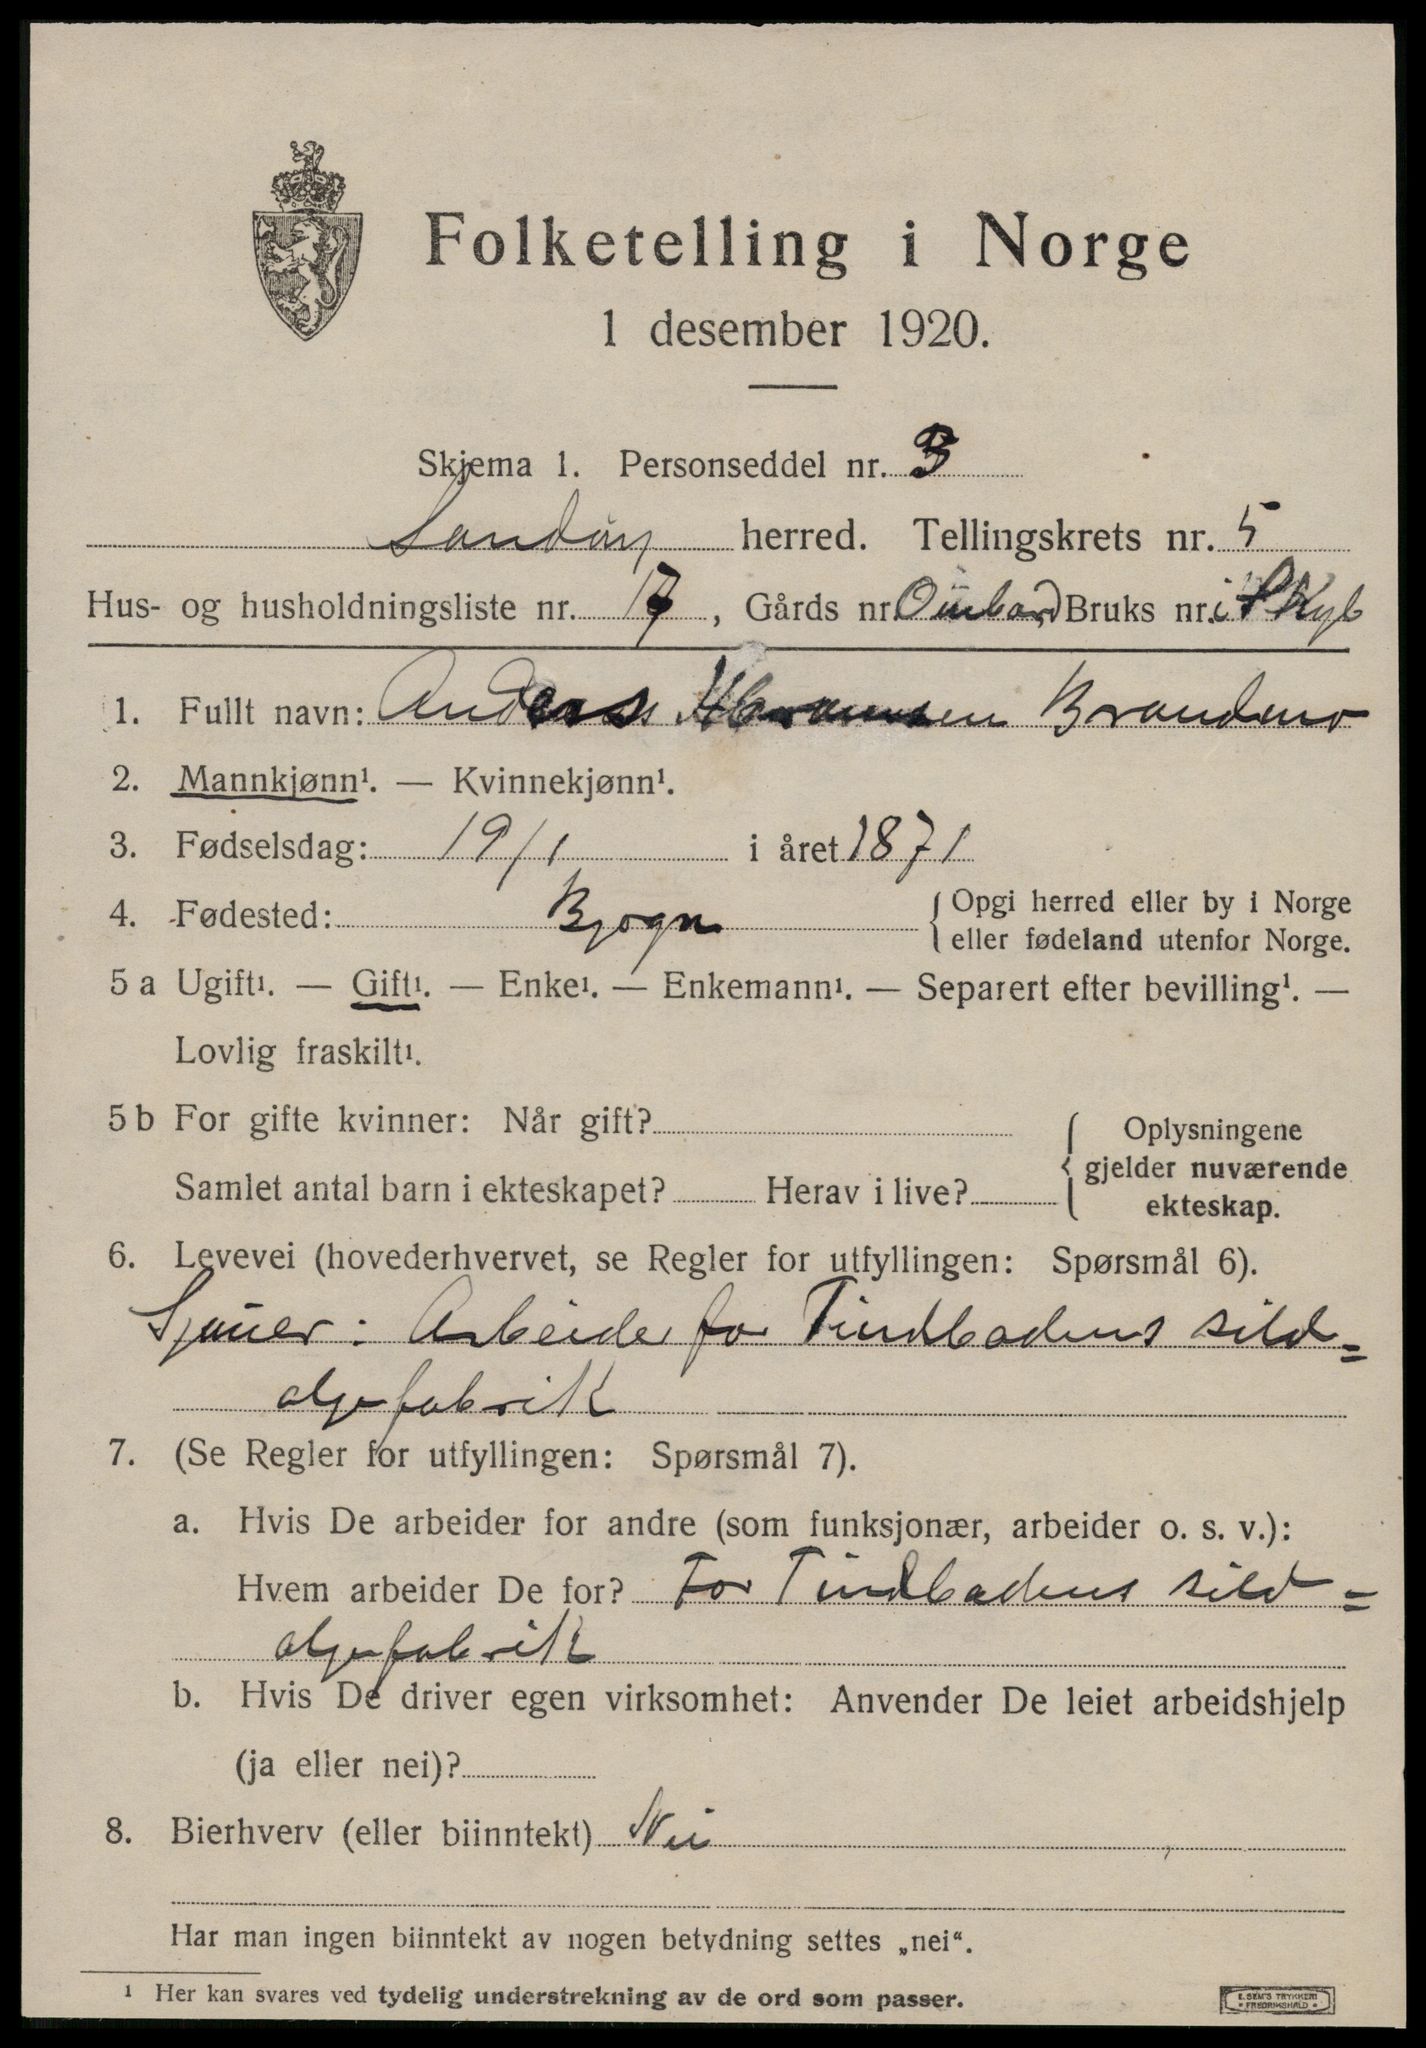 Folketelling i Norge
1 desember 1920.
Skjema 1. Personseddel nr. 3
Sandøy herred. Tellingskrets nr. 5
Hus- og husholdningsliste nr. 17, Gårds nr. Ombord Bruks nr. i Skyb
1. Fullt navn: Anders Abramsen Brandmo
2. Mannkjønn¹. — Kvinnekjønn¹.
3. Fødselsdag: 19/1 i året 1871
4. Fødested: Bjogn { Opgi herred eller by i Norge
eller fødeland utenfor Norge.
5 a Ugift¹. — Gift¹. — Enke¹. — Enkemann¹. — Separert efter bevilling¹. —
Lovlig fraskilt¹.
5 b For gifte kvinner: Når gift? { Oplysningene
gjelder nuværende
Samlet antal barn i ekteskapet? Herav i live?
ekteskap.
6. Levevei (hovederhvervet, se Regler for utfyllingen: Spørsmål 6).
Sjauer: Arbeider for Tindbadens sild=
oljefabrik
7. (Se Regler for utfyllingen: Spørsmål 7).
a. Hvis De arbeider for andre (som funksjonær, arbeider o. s. v.):
Hvem arbeider De for? For Tindbadens sild=
oljefabrik
b. Hvis De driver egen virksomhet: Anvender De leiet arbeidshjelp
(ja eller nei)?
8. Bierhverv (eller biinntekt) Nei
Har man ingen biinntekt av nogen betydning settes „nei“.
¹ Her kan svares ved tydelig understrekning av de ord som passer.
E. SEM'S TRYKKERI
• FREDRIKSHALD •